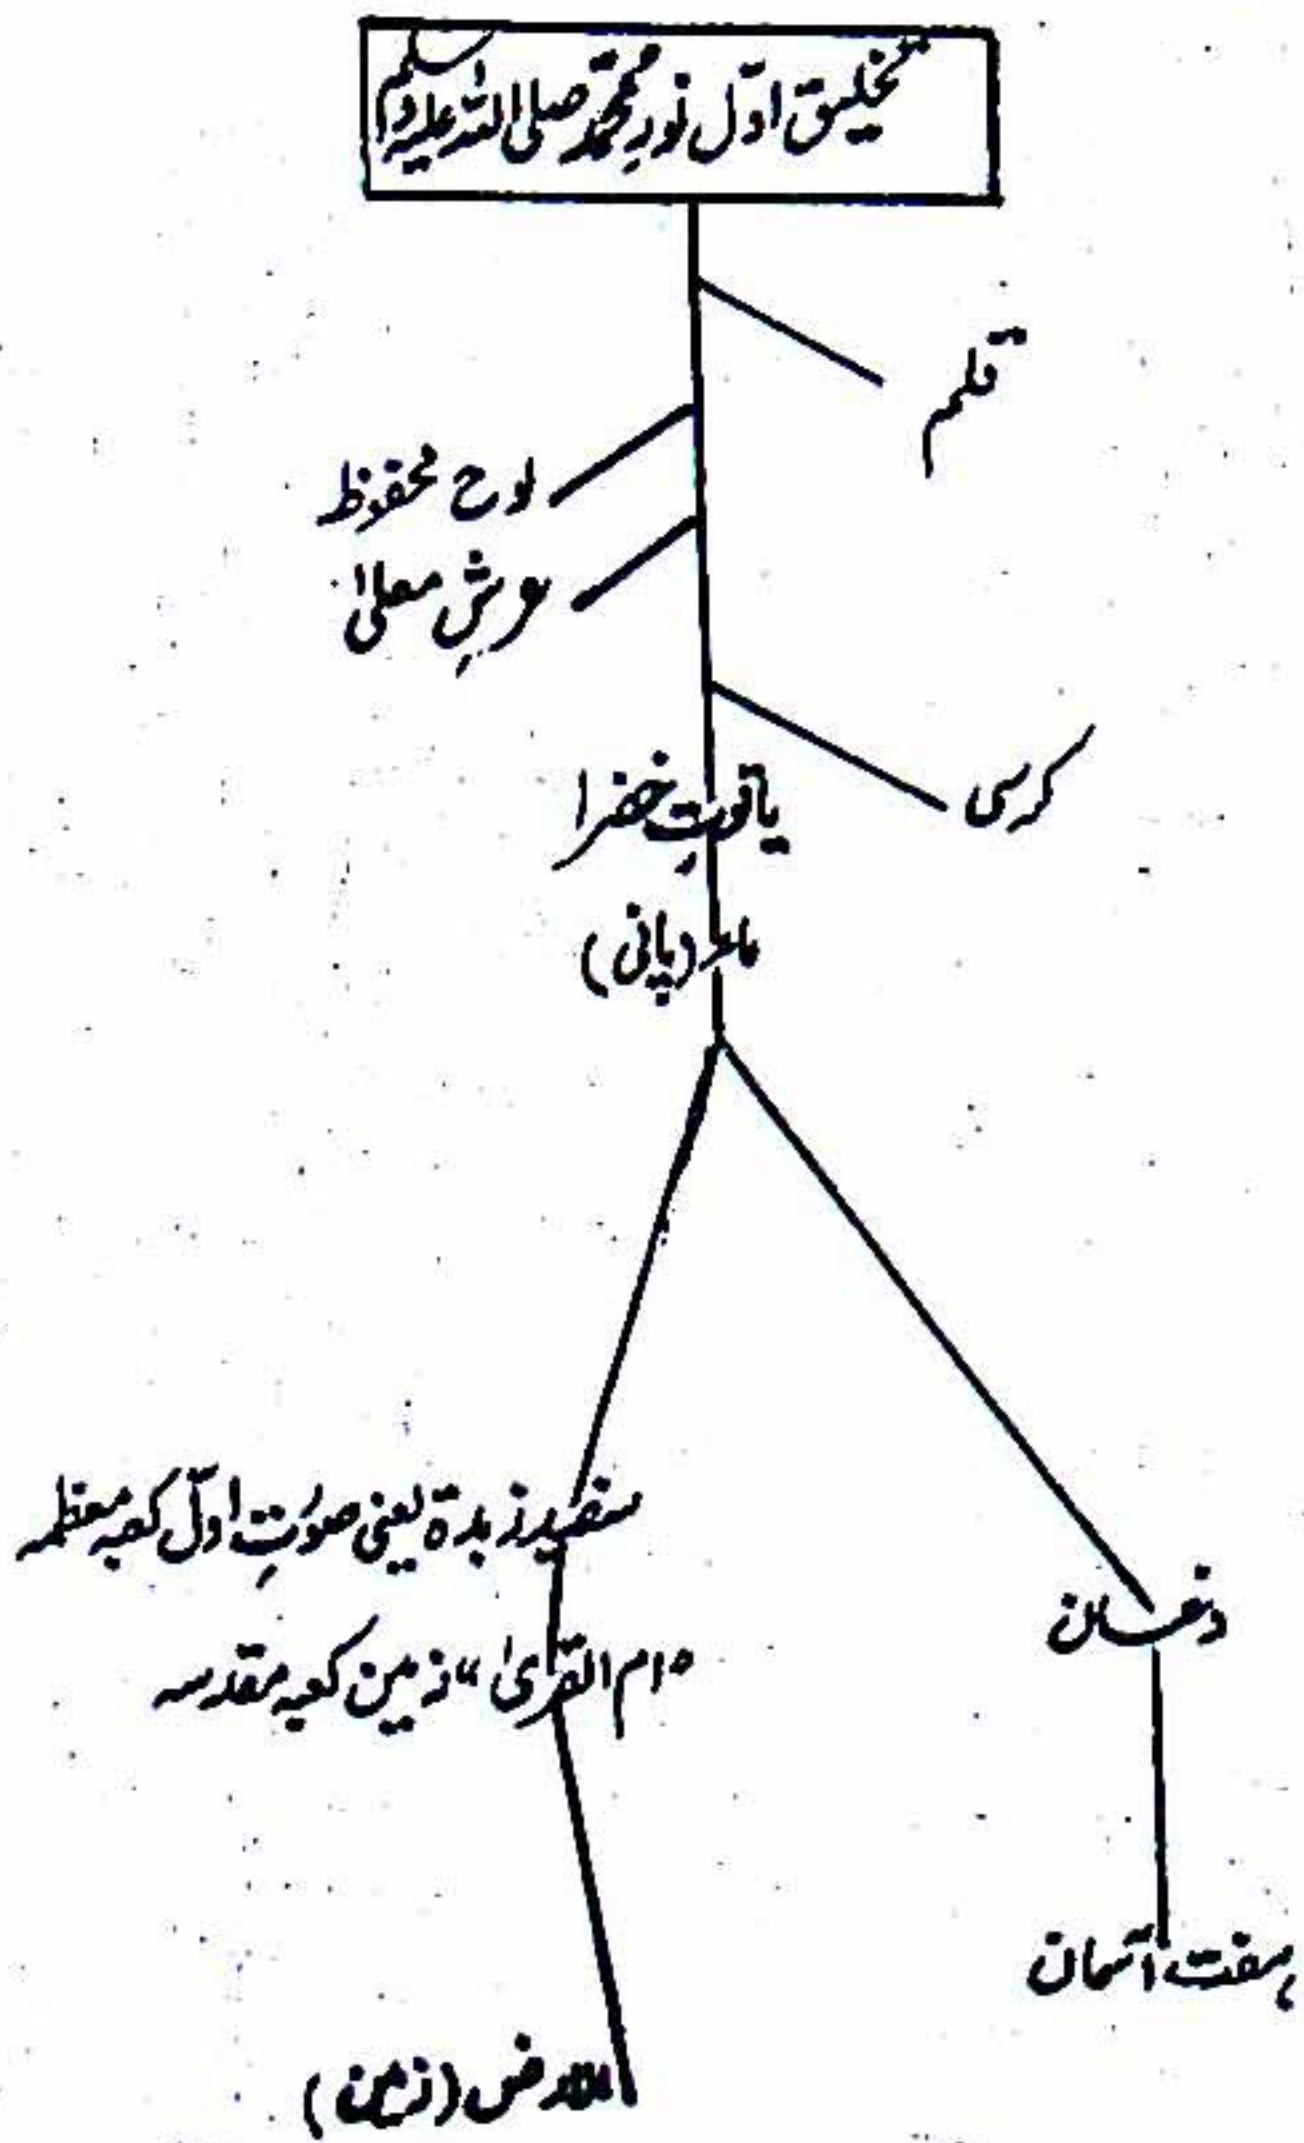 تخلیق اوّل نورِ محمّد صلی اللہ علیہ وسلم
قلم
لوح محفوظ
عرشِ معلیٰ
کرسی
یاقوتِ خضرا
ماء (پانی)
سفید زبدۃ یعنی صورتِ اوّل کعبہ معظمہ
دخان
"ام القریٰ" زمین کعبہ مقدسہ
ہفت آسمان
الارض (زمین)